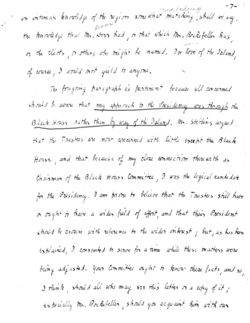 -7-
an intimate knowledge of the region somewhat matching, shall we say,
the knowledge that Mr. Dorr had, or that which Mr. Rockefeller has,
or the Clerks, or others who might be named. In love of the Island,
of course, I would not yield to anyone.
The foregoing paragraph is pertinent because all concerned
should be aware that my approach to the Presidency was through the
Black House rather than by way of the Island. Mr. Stebbins argued
that the Trustees are now concerned with little except the Black
House, and that because of my close connection therewith as
Chairman of the Black House Committee, I was the logical candidate
for the Presidency. I am prone to believe that the Trustees still have
or ought to have a wider field of effort, and that their President
should be chosen with reference to the wider interest; but, as has been
explained, I consented to serve for a time while these matters were
being adjusted. Your Committee ought to know these facts, and so,
I think, should all who may see this letter or a copy of it;
especially Mr. Rockefeller, should you acquaint him with our